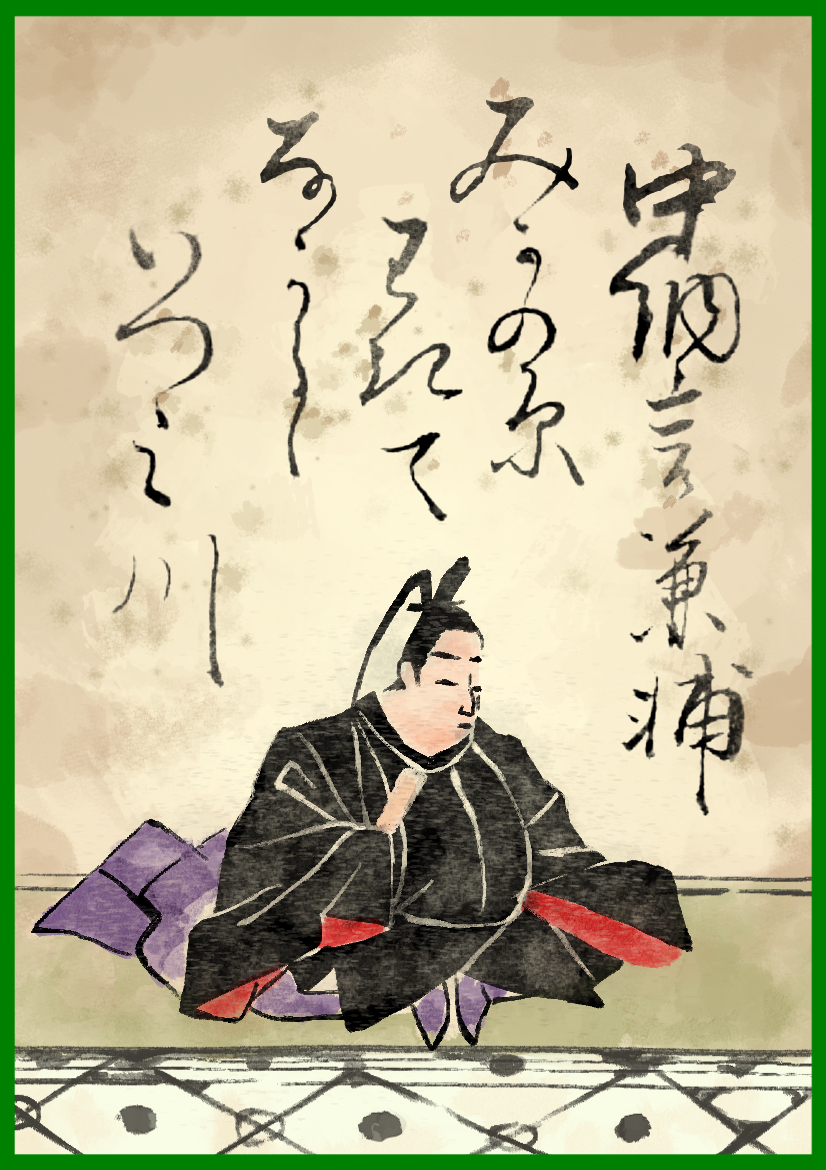 中納言兼輔
みかの原
わきて
なかるゝ
いつミ川